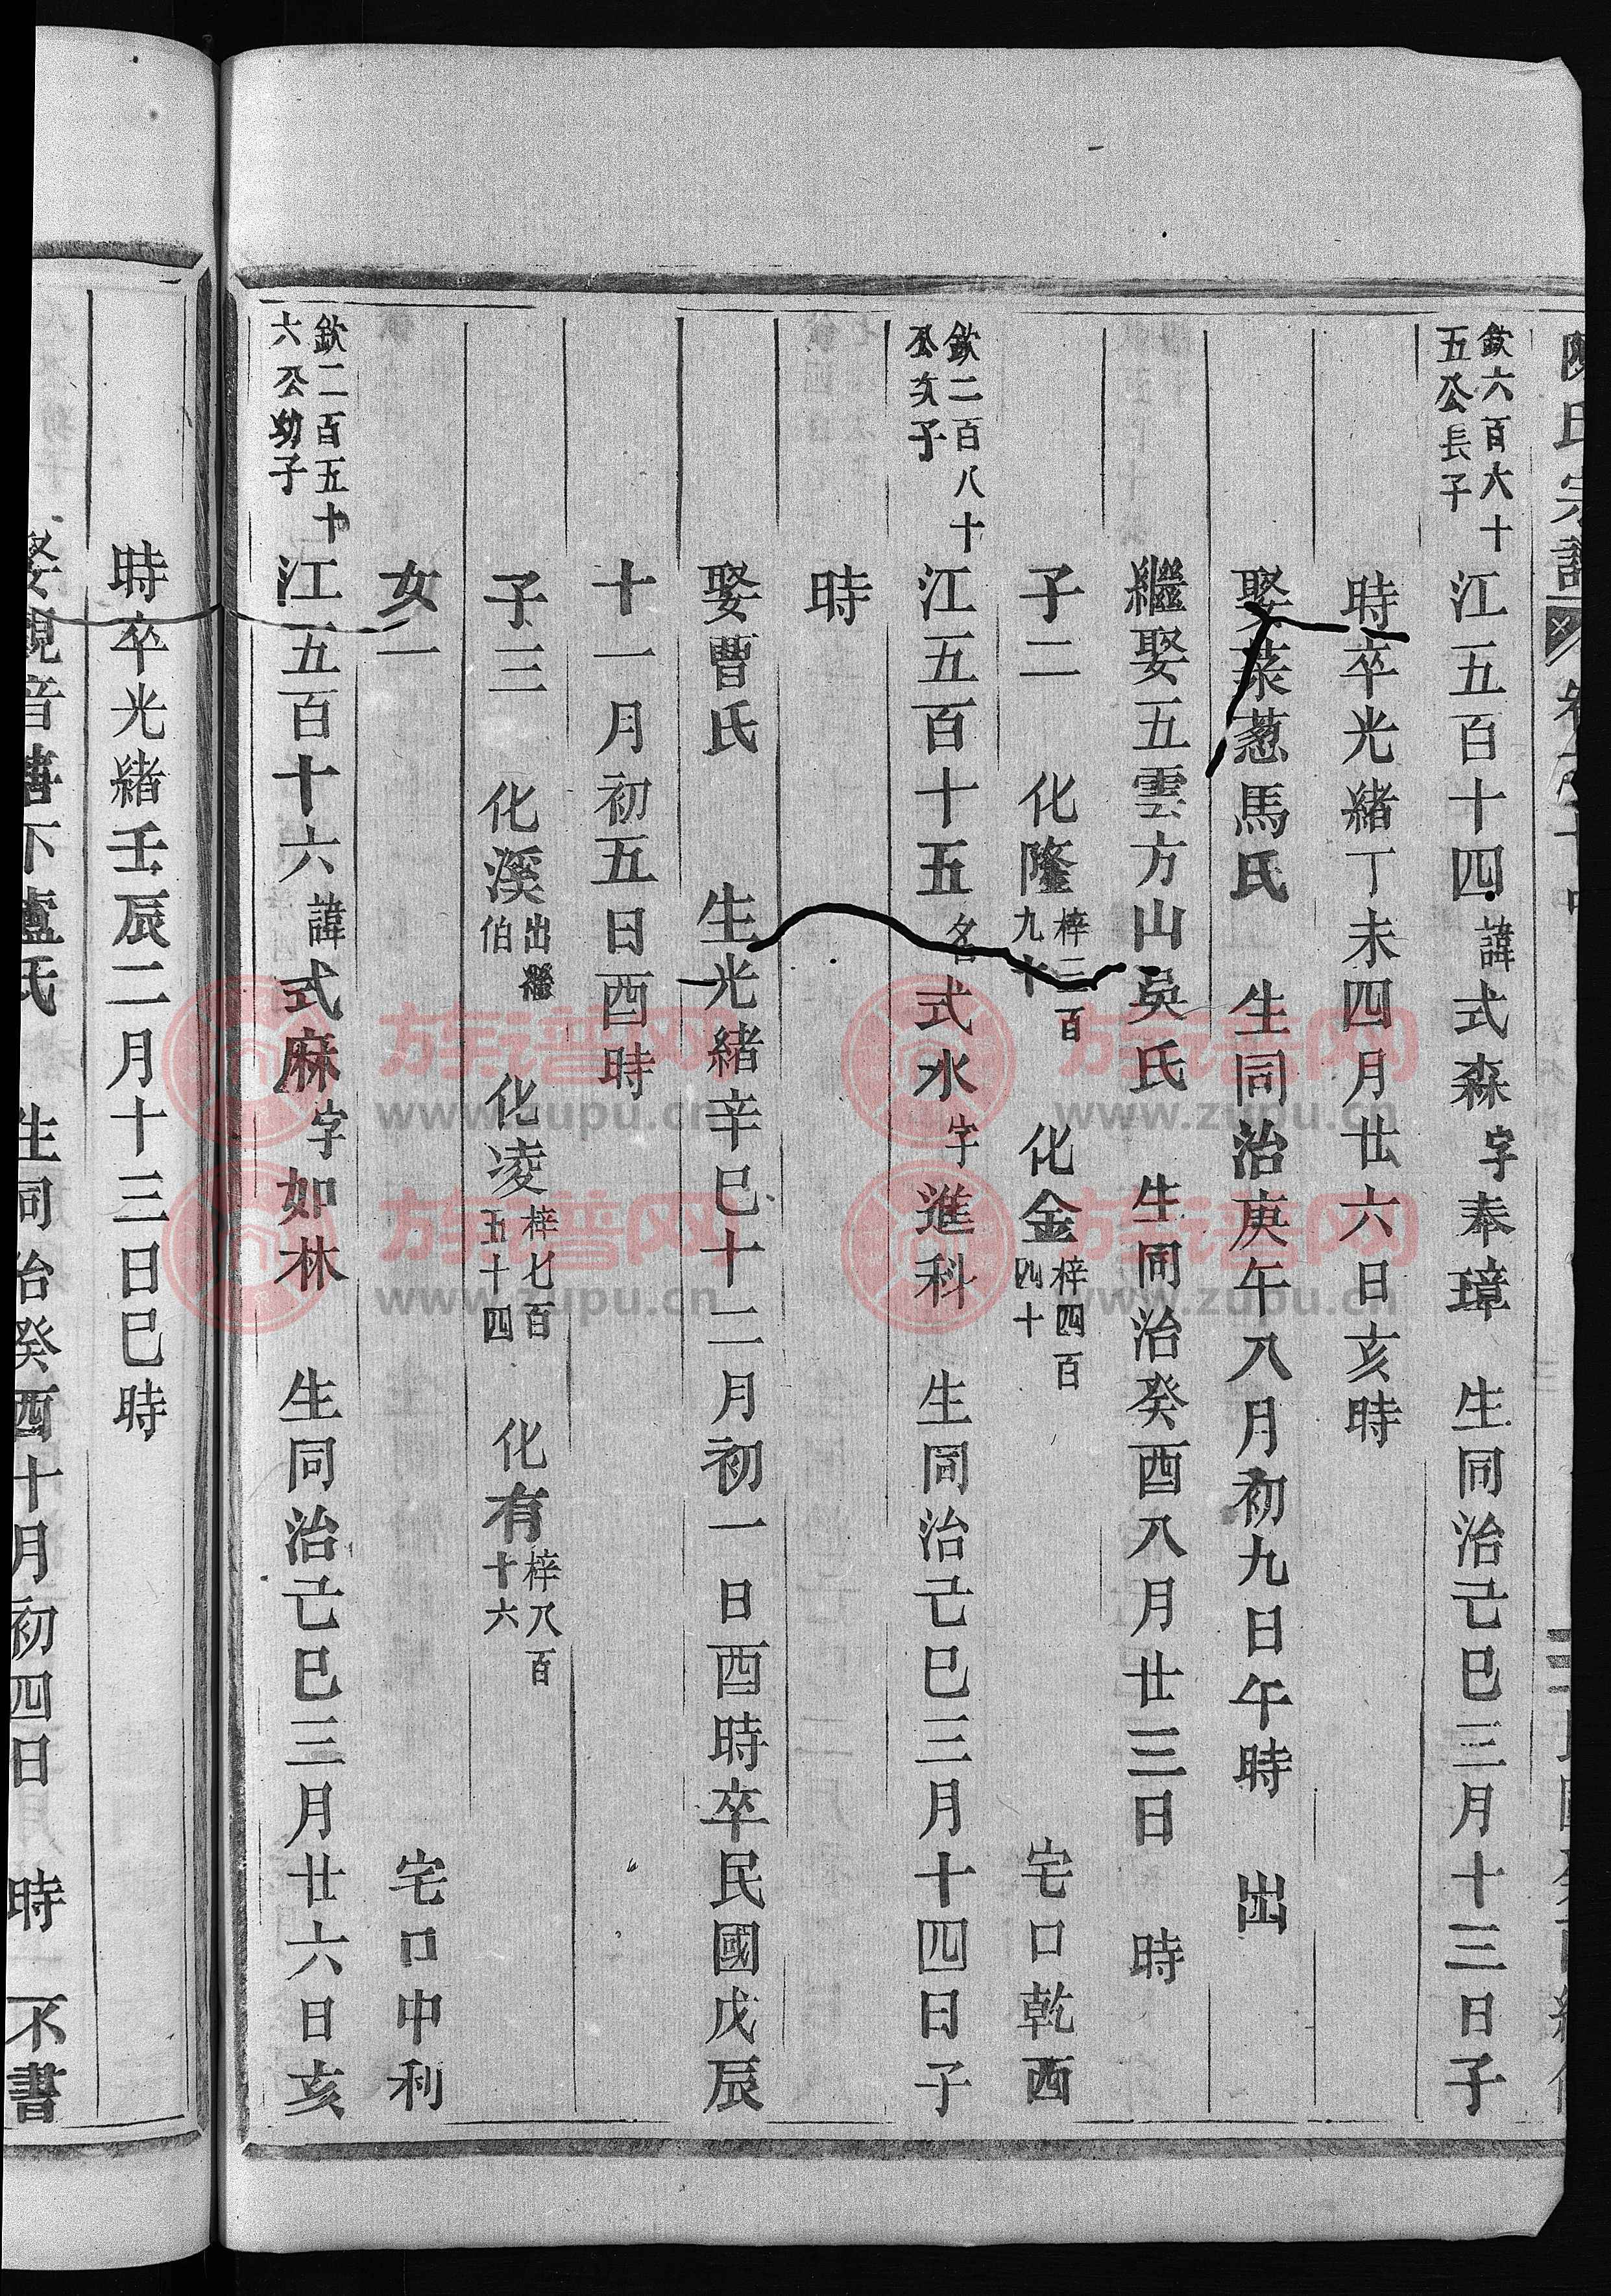 欽六百六十
五公長子
江五百十四諱式森字奉璋 生同治己巳三月十三日子
時卒光緒丁未四月廿六日亥時
娶菜葱馬氏 生同治庚午八月初九日午時 出
繼娶五雲方山吳氏 生同治癸酉八月廿三日 時
子二 化隆梓三百九十 化金梓四百四十 宅口乾西
欽二百八十
公次子
江五百十五名式水字進科 生同治己巳三月十四日子
時
娶曹氏 生光緒辛巳十二月初一日酉時卒民國戊辰
十一月初五日酉時
子三 化溪出繼伯 化凌梓七百五十四 化有梓八百十六
女一 宅口中利
欽二百五十
六公幼子
江五百十六諱式麻字如林 生同治己巳三月廿六日亥
時卒光緒壬辰二月十三日巳時
娶觀音塔下盧氏 生同治癸酉十月初四日 時 不書
族譜网
www.zupu.cn
族譜网
www.zupu.cn
族譜网
www.zupu.cn
族譜网
www.zupu.cn